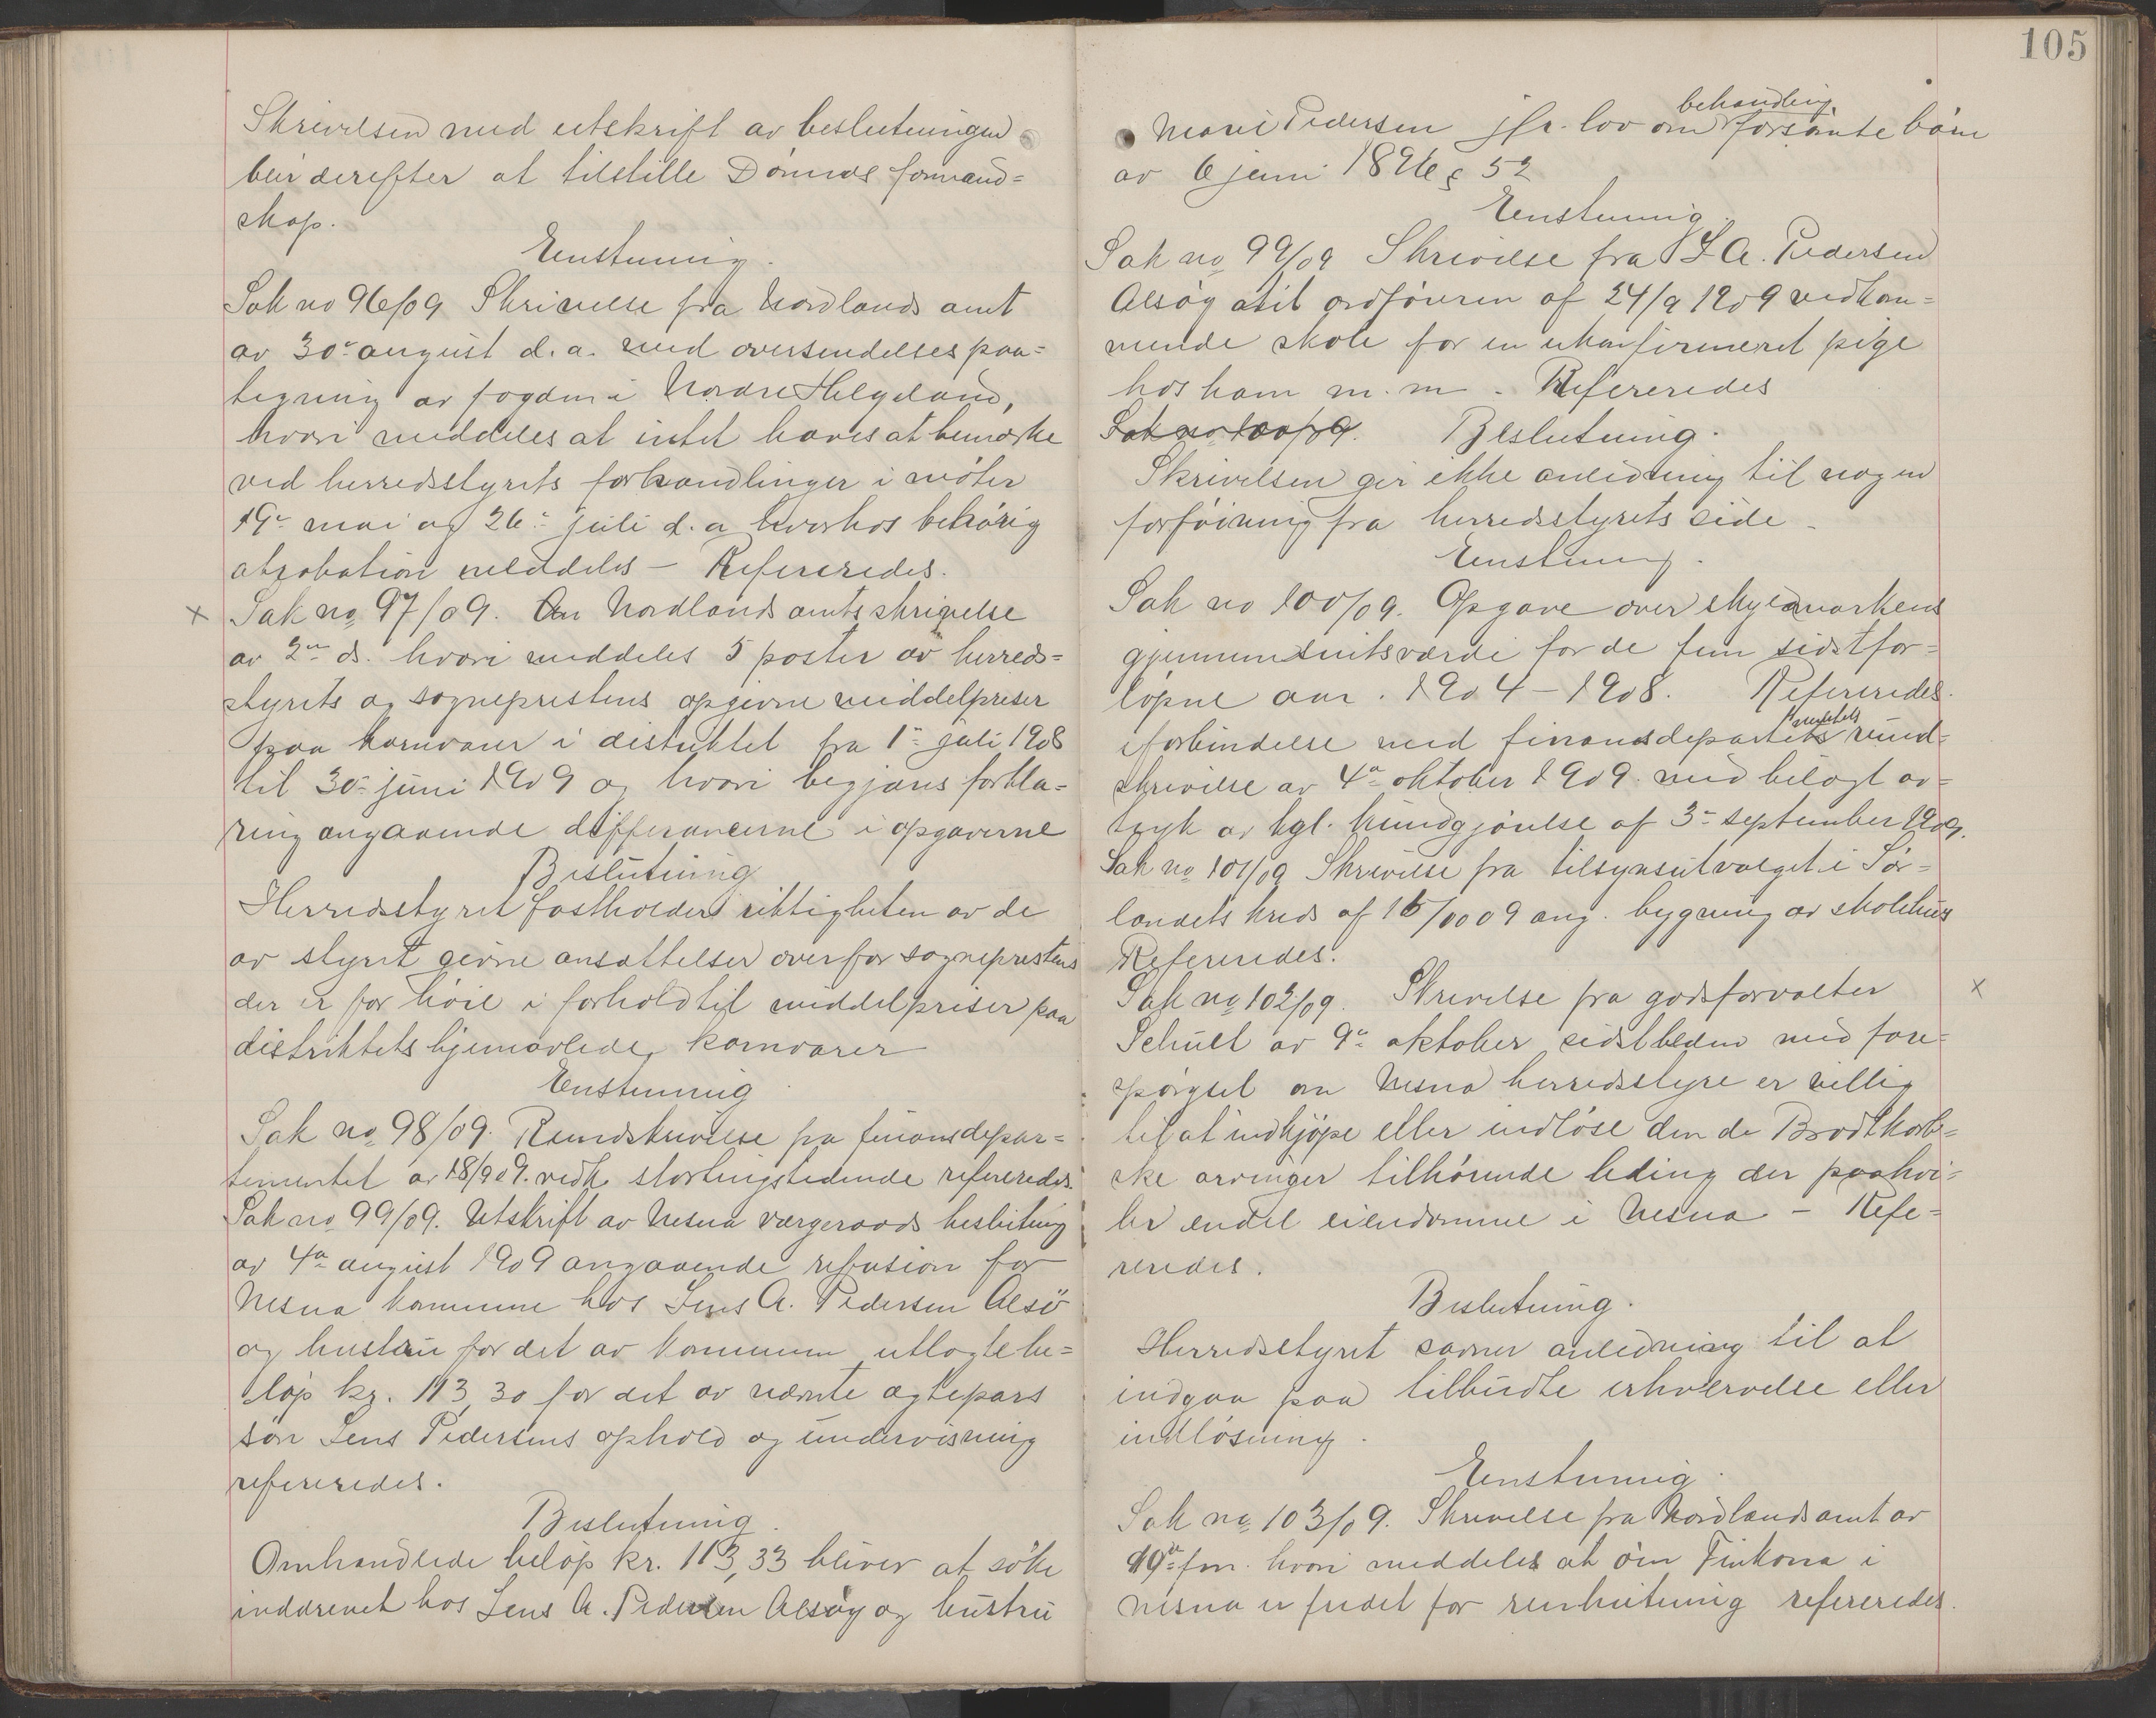 Skrivelsen med utskrift av beslutningen
blir derefter at tilstille Dönnes formand=
skap.
Enstemmig.
Sak no 96/09 Skrivelse fra Nordlands amt
av 30te august d.a. med oversendelsespaa=
tegning av fogden i Nordre Helgeland,
hvori meddeles at intet haves at bemærke
ved herredsstyrets forhandlinger i möter
19de mai og 26de juli d.a hvorhos behörig
abrobation meddeles – Refereredes.
x Sak no 97/09. Nordlands amts skrivelse
av 2den ds. hvori meddeles 5 poster av herreds=
styrets og sogneprestens opgivne middelpriser
paa kornvarer i distriktet fra 1ste juli 1908
til 30te juni 1909 og hvori begjæres forkla=
ring angaaende differancerne i opgaverne
Beslutning
Herredsstyret fastholder riktigheten av de
av styret givne ansættelser overfor sogneprestens
der er for höie i forhold til middelpriser paa
distriktets hjemavlede kornvarer
Enstemmig.
Sak no 98/09. Rundskrivelse fra finansdepar=
tementet av 18/9 09. vedk. stortingstidende refereredes.
Sak no 99/09. Utskrift av Nesna værgeraads beslutning
av 4de august 1909 angaaende refusion for
Nesna kommune hos Jens A. Pedersen Alsö
og hustru for det av kommunen utlagte be=
löp kr. 113,30 for det av nævnte ægtepars
sön Jens Pedersens ophold og undervisning
refereredes.
Beslutning.
Omhandlede belöp kr. 113,33 bliver at söke
inddrevet hos Jens A. Pedersen Alsöy og hustru
105
Marie Pedersen jfr. lov om behandling forsömte börn
av 6 juni 1896 § 52
Enstemmig.
Sak no 99/09 Skrivelse fra J A. Pedersen
Alsöy til ordföreren af 24/9 1909 vedkom=
mende skole for en ukonfirmeret pige
hos ham m.m. Refereredes
Sak no 100/09. Beslutning.
Skrivelsen gir ikke anledning til nogen
forföining fra herredsstyrets side.
Enstemmig.
Sak no 100/09. Opgave over skyldmarkens
gjennemsnitsværdi for de fem sidst for=
löpne aar. 1904–1908. Refereredes.
i forbindelse med finansdepartementets rund=
skrivelse av 4de oktober 1909 med bilagt av=
tryk av kgl. kundgjörelse af 3de september 1909.
Sak no 101/09 Skrivelse fra tilsynsutvalget i Sör=
landets kreds af 16/10 09 ang. bygning av skolehus
Refereredes.
Sak no 102/09. Skrivelse fra godsforvalter x
Schult av 9de oktober sidstleden med fore=
spörgsel om Nesna herredsstyre er villig
til at indkjöpe eller indlöse den de Brodtkorb=
ske arvinger tilhörende leding der paahvi=
ler endel eiendomme i Nesna – Refe=
reredes.
Beslutning.
Herredsstyret savner anledning til at
indgaa paa tilbudte erhvervelse eller
indlösning.
Enstemmig.
Sak no 103/09. Skrivelse fra Nordlands amt av
19de fm. hvori meddeles at öen Finkona i
Nesna er fredet for renbeitning refereredes.